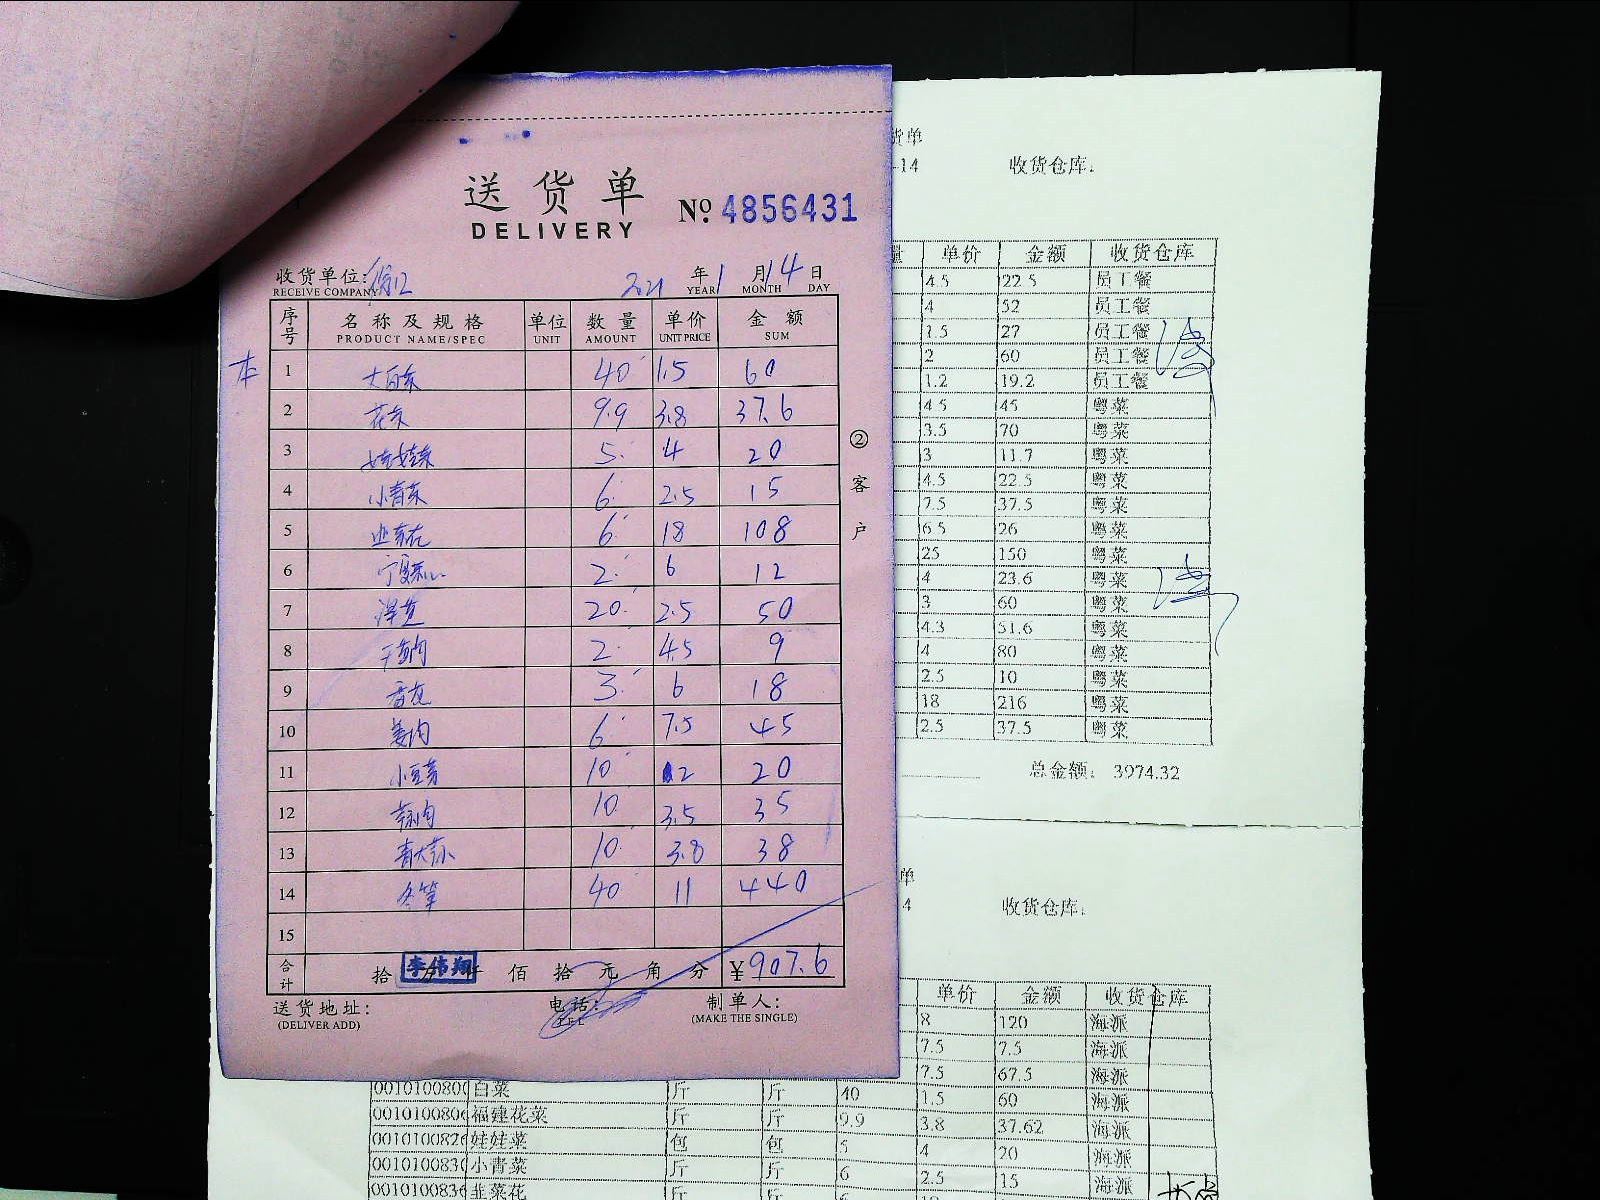 送货单
DELIVERY
№ 4856431
收货单位:
RECEIVE COMPANY
2021 年 1 月 14 日
YEAR MONTH DAY
序号 名称及规格 单位 数量 单价 金额
PRODUCT NAME/SPEC UNIT AMOUNT UNIT PRICE SUM
本
1 大白菜 40 1.5 60
2 花菜 9.9 3.8 37.6
3 娃娃菜 5 4 20
4 小青菜 6 2.5 15
5 韭菜花 6 18 108
6 宁夏菜心 2 6 12
7 洋芋 20 2.5 50
8 2 4.5 9
9 3 6 18
10 姜肉 6 7.5 45
11 小豆芽 10 2 20
12 10 3.5 35
13 青大 10 3.8 38
14 冬笋 40 11 440
15
合计 拾 万 仟 佰 拾 元 角 分 ¥907.6
李伟翔
送货地址:
(DELIVER ADD)
电话:
TEL
制单人:
(MAKE THE SINGLE)
②客户
货单
-14 收货仓库:
量 单价 金额 收货仓库
4.5 22.5 员工餐
4 52 员工餐
1.5 27 员工餐
2 60 员工餐
1.2 19.2 员工餐
4.5 45 粤菜
3.5 70 粤菜
3 11.7 粤菜
4.5 22.5 粤菜
7.5 37.5 粤菜
6.5 26 粤菜
25 150 粤菜
4 23.6 粤菜
3 60 粤菜
4.3 51.6 粤菜
4 80 粤菜
2.5 10 粤菜
18 216 粤菜
2.5 37.5 粤菜
总金额: 3974.32
单
4 收货仓库:
单价 金额 收货仓库
8 120 海派
7.5 7.5 海派
7.5 67.5 海派
0010100800 白菜 斤 斤 40 1.5 60 海派
0010100806 福建花菜 斤 斤 9.9 3.8 37.62 海派
0010100826 娃娃菜 包 包 5 4 20 海派
0010100830 小青菜 斤 斤 6 2.5 15 海派
0010100836 韭菜花 斤 斤 6 18